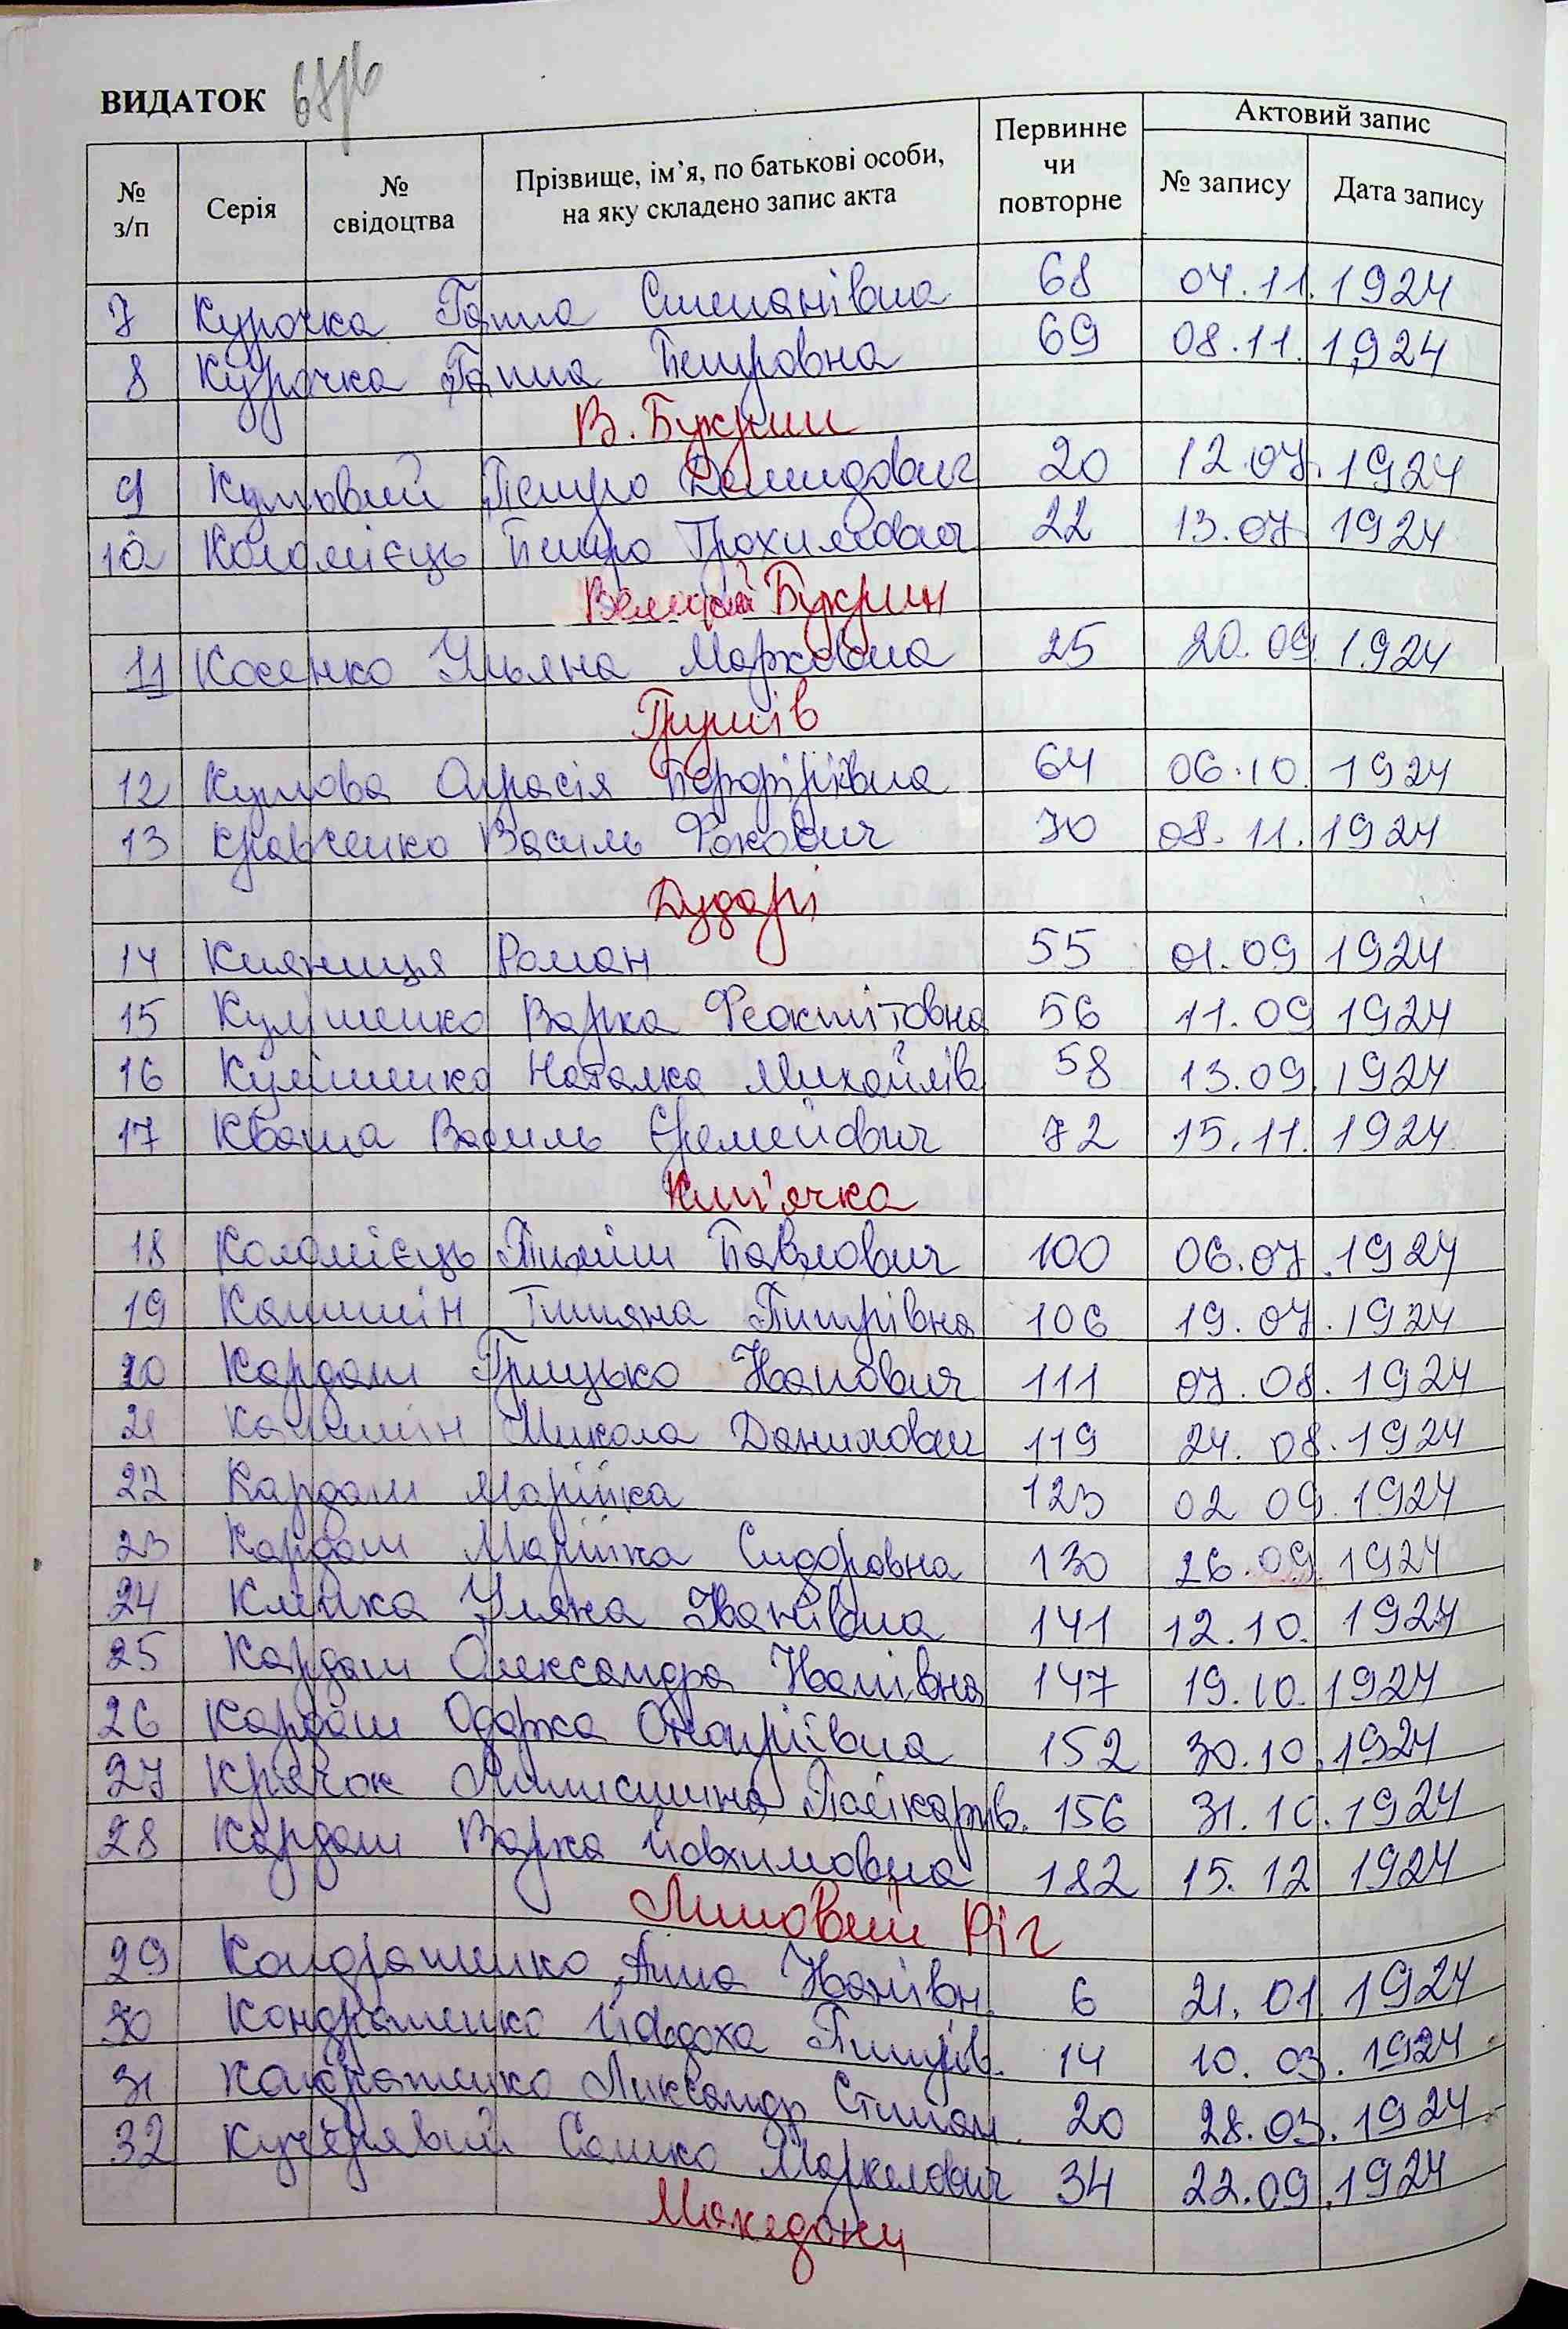 ВИДАТОК
№ з/п Серія № свідоцтва Прізвище, ім’я, по батькові особи, на яку складено запис акта Первинне чи повторне Актовий запис № запису Дата запису
7 Курочка Ганна Степанівна 68 04.11.1924
8 Курочка Ганна Петровна 69 08.11.1924
В. Букрин
9 Кутовий Петро Демидович 20 12.07.1924
10 Коломієць Петро Трохимович 22 13.07 1924
Великий Букрин
11 Косенко Ульяна Марковна 25 20.09.1924
Грушів
12 Кутова Опрасія 64 06.10 1924
13 Кравченко Василь Фокович 70 08.11.1924
Дударі
14 Кияниця Роман 55 01.09 1924
15 Кулішенко Варка Феоктітовна 56 11.09 1924
16 Кулішенко Наталка Михайлів 58 13.09.1924
17 Кваша Василь Єремейович 72 15.11.1924
Кип'ячка
18 Коломієць Пилип Павлович 100 06.07.1924
19 Калитін Тетяна Питрівна 106 19.07.1924
20 Кардаш Грицько Іванович 111 07.08.1924
21 Калитін Микола Данилович 119 24.08.1924
22 Кардаш Марійка 123 02 09.1924
23 Кардаш Марійка Сидоровна 130 26.09.1924
24 Уляна Іванівна 141 12.10. 1924
25 Кардаш Олександра Іванівна 147 19.10.1924
26 Кардаш Одарка Онопріївна 152 30.10.1924
27 Крячок 156 31.10.1924
28 Кардаш Варка Йовхимовна 182 15.12 1924
Липовий Ріг
29 Кондратенко Анна Іванівн. 6 21.01.1924
30 Кондратенко Йавдоха Питрів. 14 10.03.1924
31 Кондратенко Ликсандр Стипан. 20 28.03.1924
32 Кучерявий Сашко Маркелович 34 22.09.1924
Македони